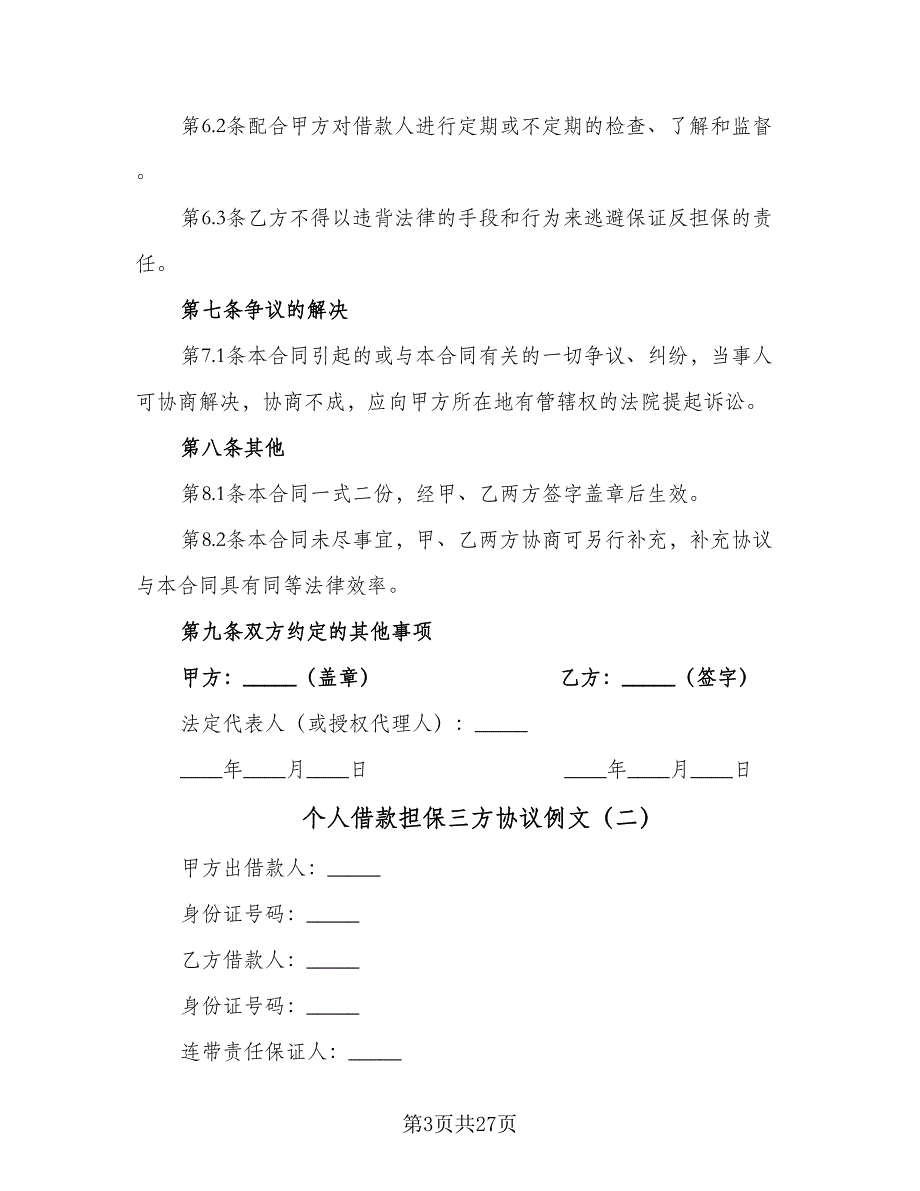 第6.2条配合甲方对借款人进行定期或不定期的检查、了解和监督
。
第6.3条乙方不得以违背法律的手段和行为来逃避保证反担保的责
任。
第七条争议的解决
第7.1条本合同引起的或与本合同有关的一切争议、纠纷，当事人
可协商解决，协商不成，应向甲方所在地有管辖权的法院提起诉讼。
第八条其他
第8.1条本合同一式二份，经甲、乙两方签字盖章后生效。
第8.2条本合同未尽事宜，甲、乙两方协商可另行补充，补充协议
与本合同具有同等法律效率。
第九条双方约定的其他事项
甲方：_____（盖章） 乙方：_____（签字）
法定代表人（或授权代理人）：_____
____年____月____日 ____年____月____日
个人借款担保三方协议例文（二）
甲方出借款人：_____
身份证号码：_____
乙方借款人：_____
身份证号码：_____
连带责任保证人：_____
第3页共27页